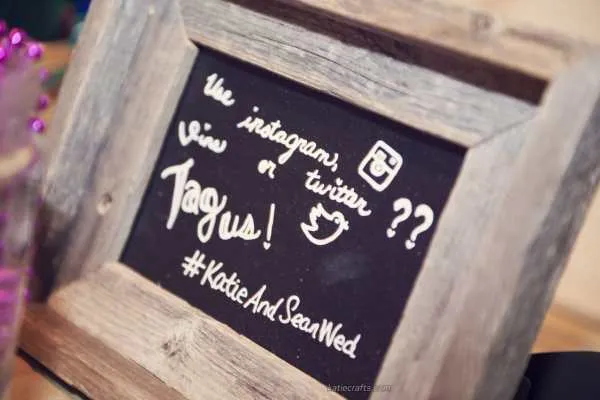 Use instagram,
Vine or twitter ??
Tag us!
#KatieAndSeanWed
katiecrafts.com